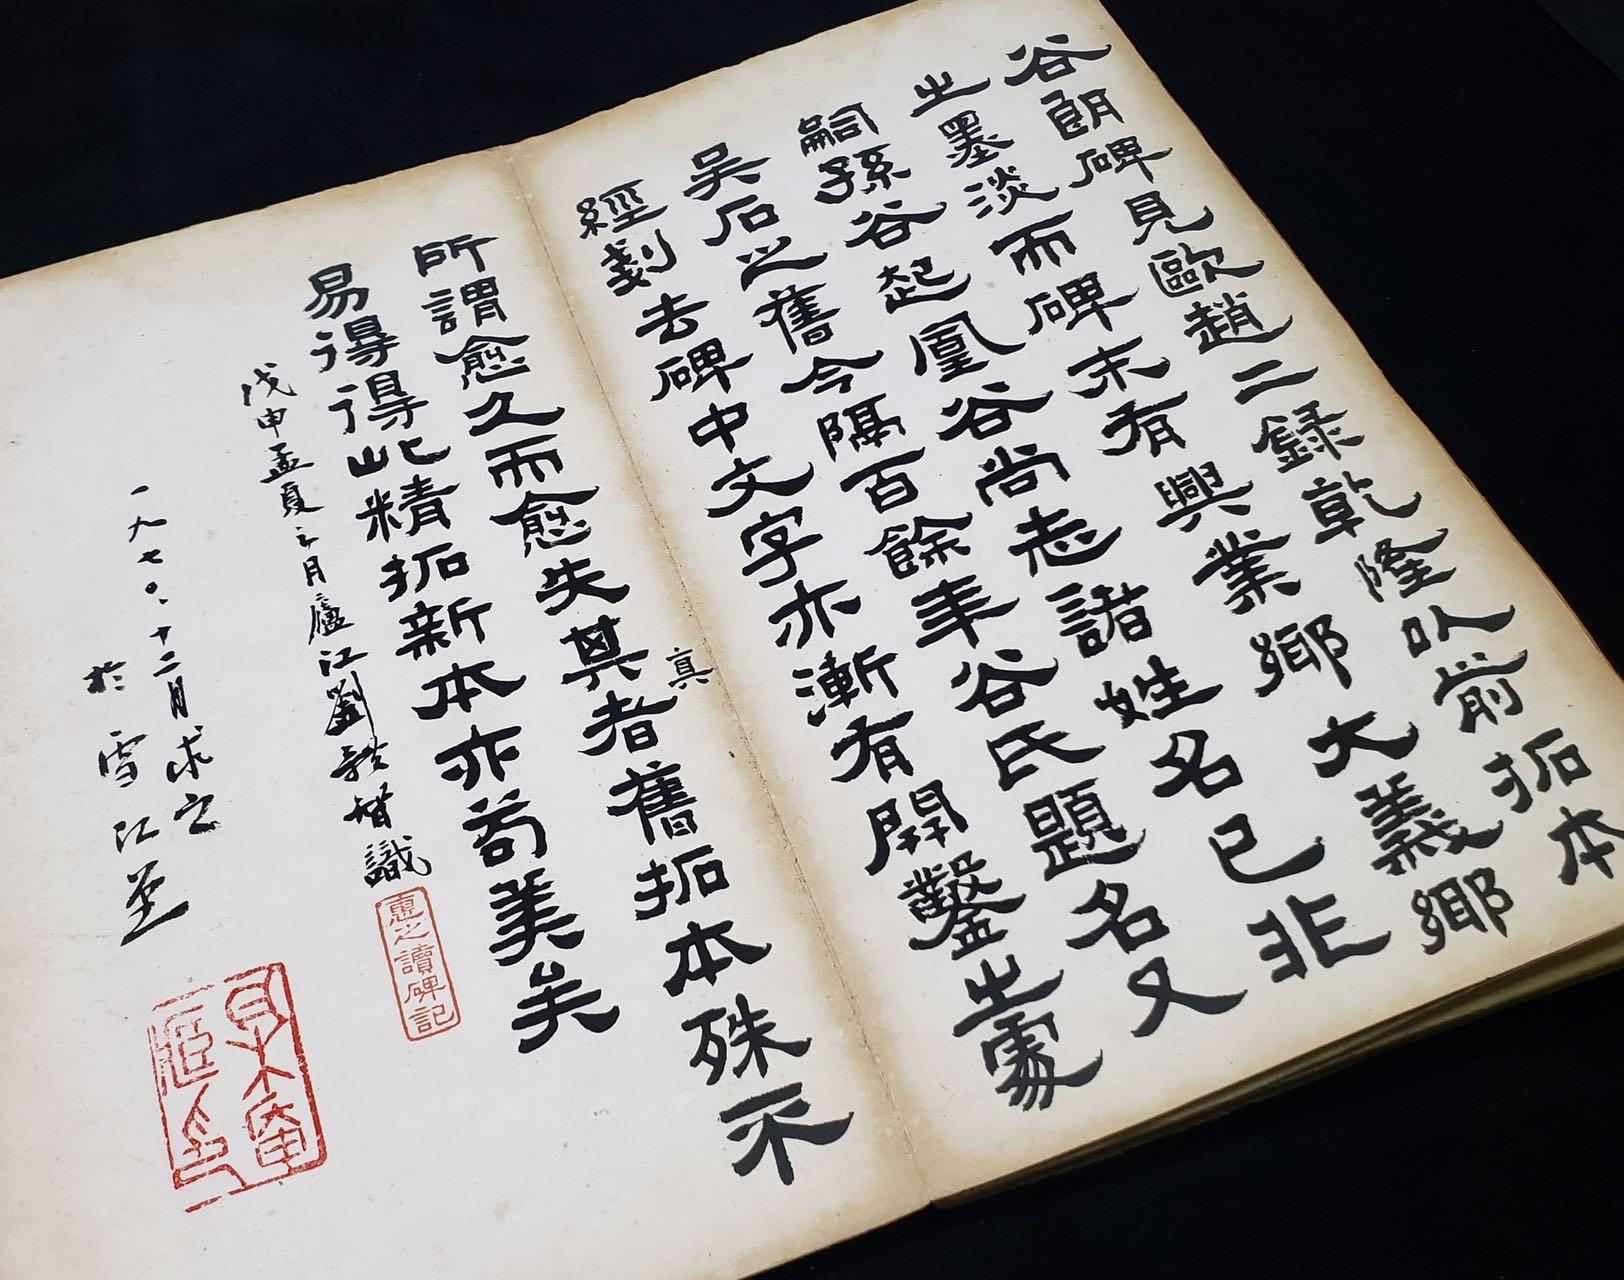 谷朗碑見歐趙二錄乾隆以前拓本
之墨淡而碑末有興業鄉大義鄉
嗣孫谷起凰谷尚志諸姓名已非
吳石之舊今隔百餘年谷氏題名又
經剗去碑中文字亦漸有開鑿之處
所謂愈久而愈失其真者舊拓本殊不
易得得此精拓新本亦苟美矣
戊申孟夏之月廬江劉體智識
惠之讀碑記
一九七〇、十二月求之
於雪江